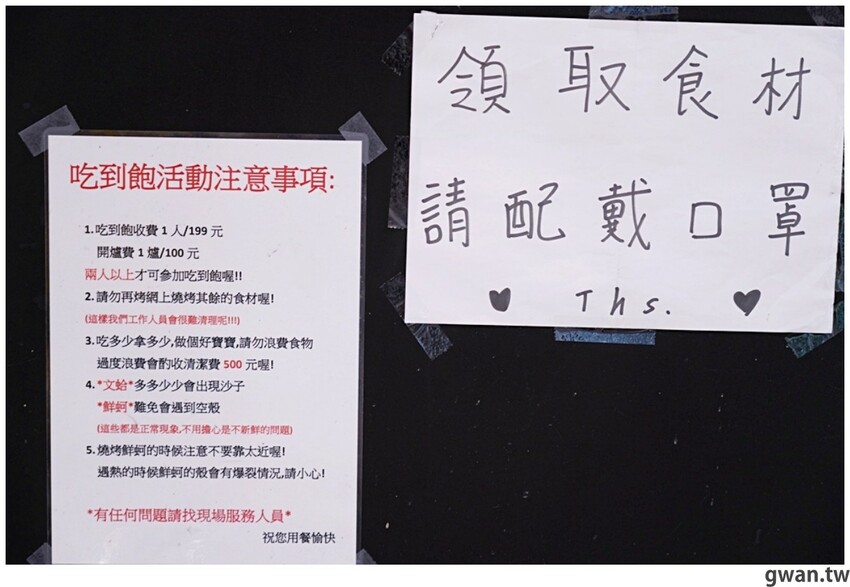 吃到飽活動注意事項:
1.吃到飽收費 1 人/199 元
開爐費 1 爐/100 元
兩人以上才可參加吃到飽喔!!
2.請勿再烤網上燒烤其餘的食材喔!
(這樣我們工作人員會很難清理呢!!!)
3.吃多少拿多少,做個好寶寶,請勿浪費食物
過度浪費會酌收清潔費 500 元喔!
4.*文蛤*多多少少會出現沙子
*鮮蚵*難免會遇到空殼
(這些都是正常現象,不用擔心是不新鮮的問題)
5.燒烤鮮蚵的時候注意不要靠太近喔!
遇熱的時候鮮蚵的殼會有爆裂情況,請小心!
*有任何問題請找現場服務人員*
祝您用餐愉快
領取食材
請配戴口罩
♥ Ths. ♥
gwan.tw